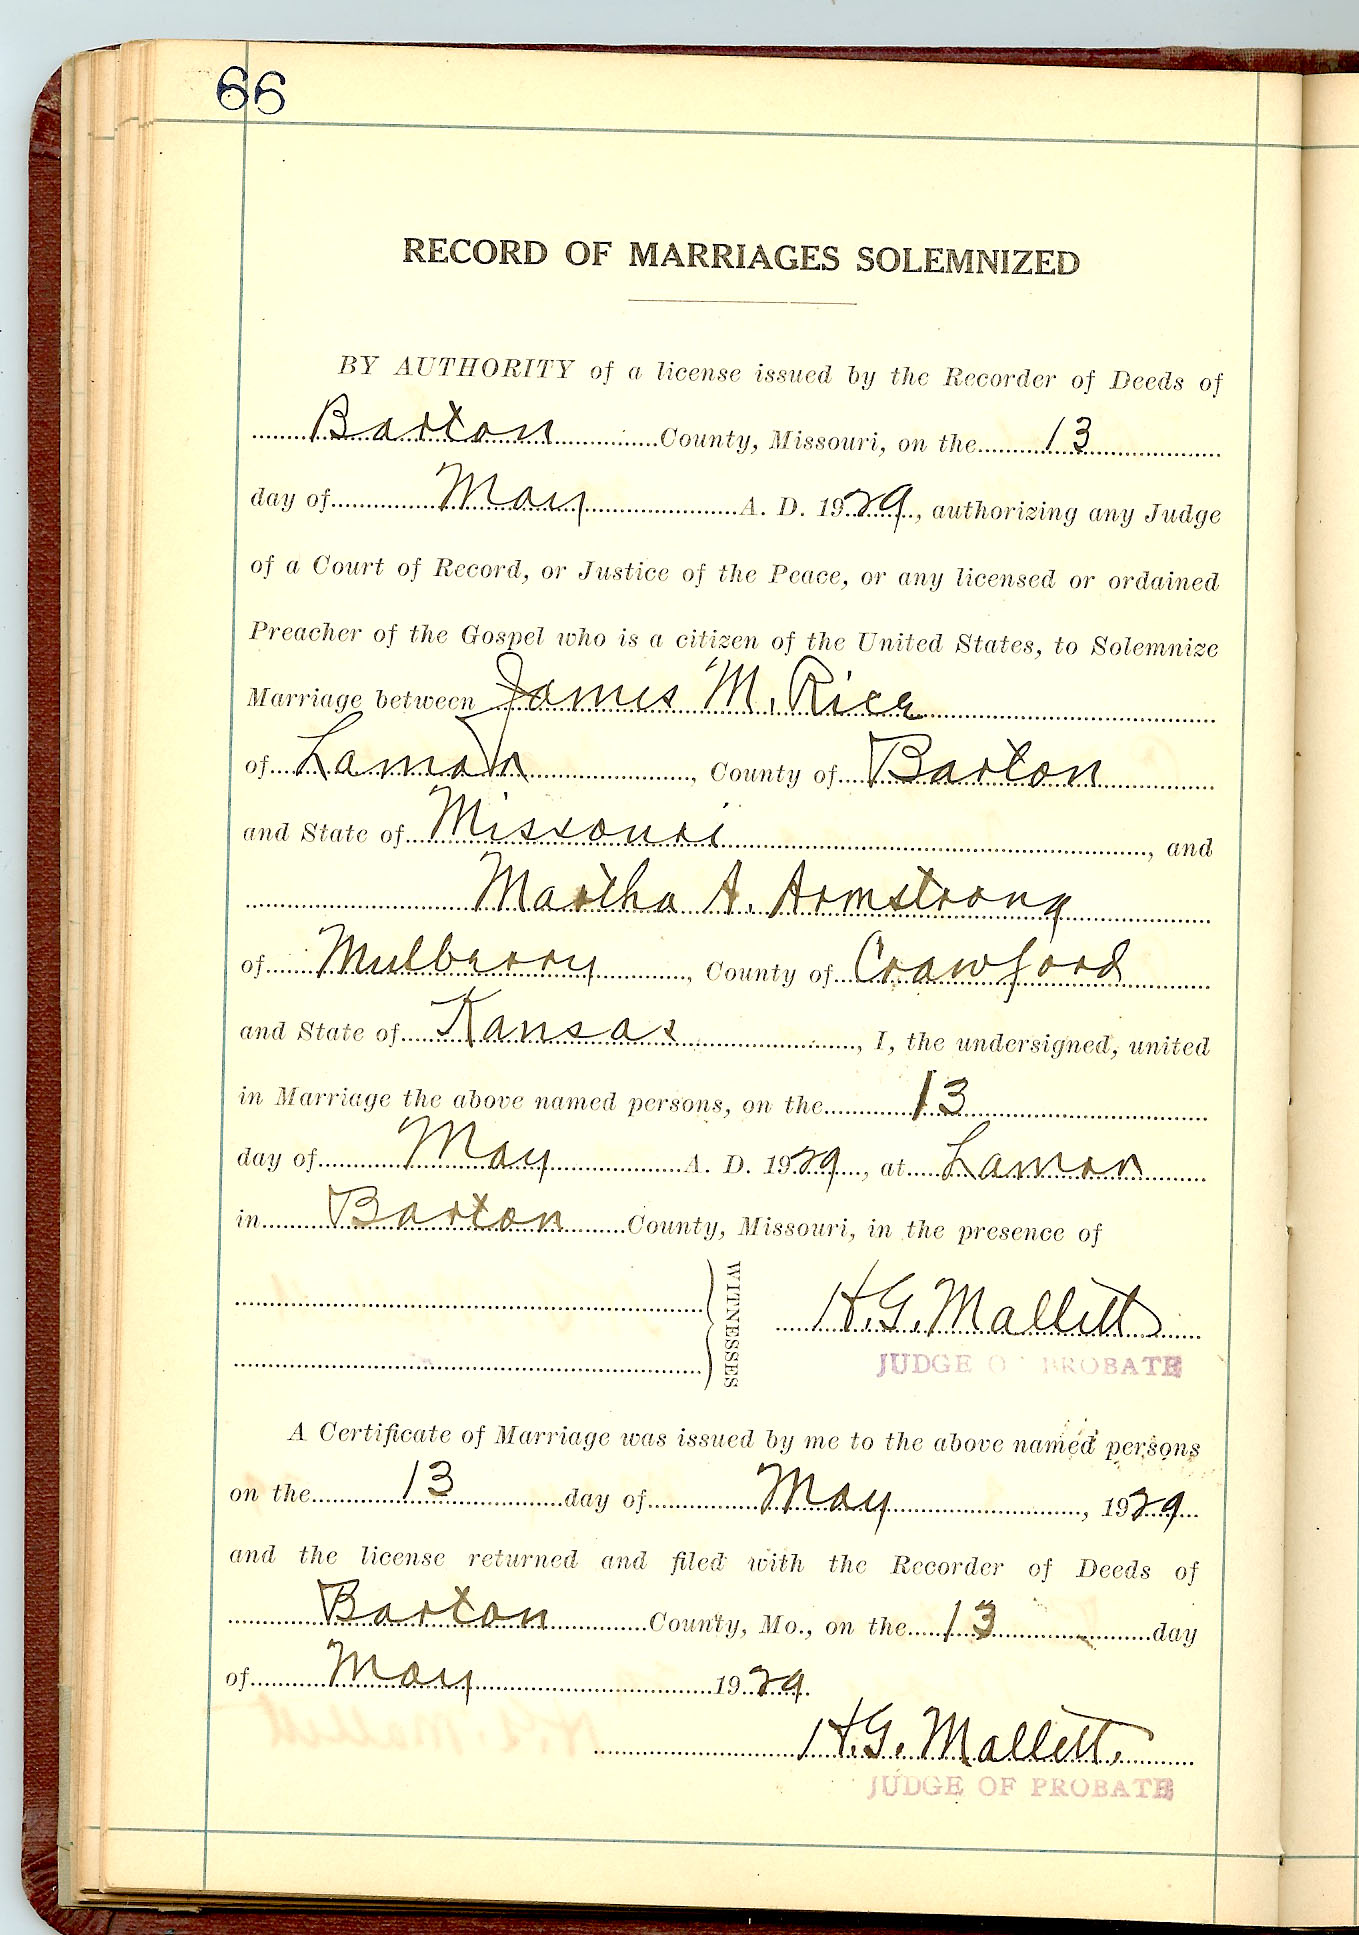 66
RECORD OF MARRIAGES SOLEMNIZED
BY AUTHORITY of a license issued by the Recorder of Deeds of
Barton County, Missouri, on the 13
day of May A. D. 1929, authorizing any Judge
of a Court of Record, or Justice of the Peace, or any licensed or ordained
Preacher of the Gospel who is a citizen of the United States, to Solemnize
Marriage between James M. Rice
of Lamar, County of Barton
and State of Missouri, and
Martha A. Armstrong
of Mulberry, County of Crawford
and State of Kansas, I, the undersigned, united
in Marriage the above named persons, on the 13
day of May A. D. 1929, at Lamar
in Barton County, Missouri, in the presence of
WITNESSES
H. G. Mallett
JUDGE OF PROBATE
A Certificate of Marriage was issued by me to the above named persons
on the 13 day of May, 1929
and the license returned and filed with the Recorder of Deeds of
Barton County, Mo., on the 13 day
of May 1929.
H. G. Mallett.
JUDGE OF PROBATE